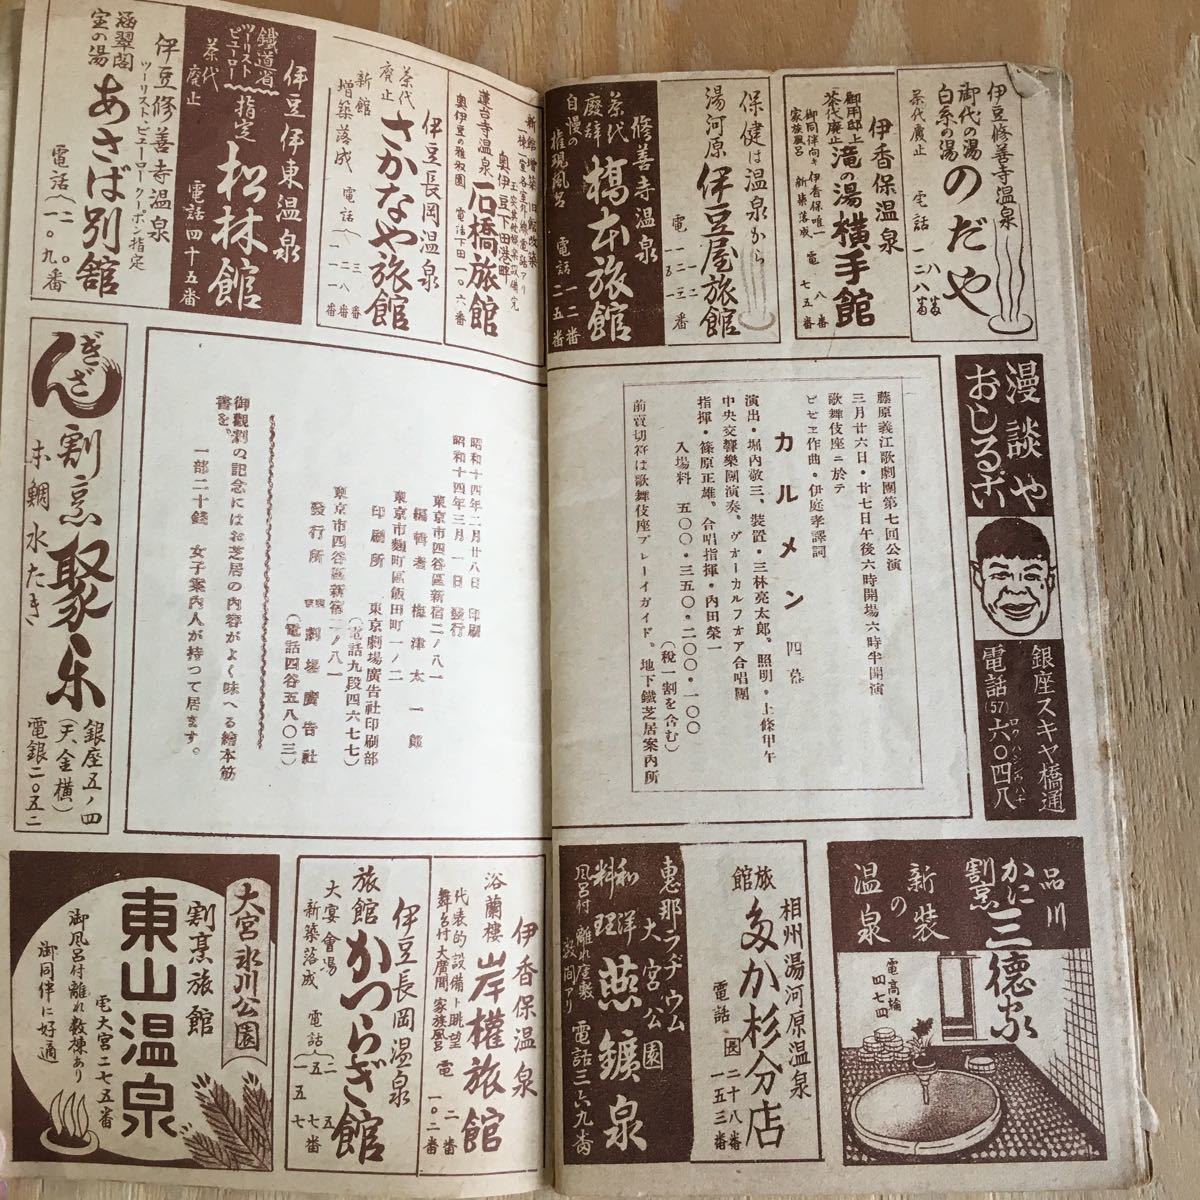 伊豆修善寺温泉
御代の湯
白糸の湯
のだや
茶代廃止
電話
伊香保温泉
御用邸上
茶代廃止
滝の湯横手館
御同伴向き
家族風呂
伊香保唯一
新築落成
電
七八
五番番
保健は温泉から
湯河原
伊豆屋旅館
電
修善寺温泉
茶代
廃辞
橋本旅館
自慢の
権現風呂
電話
二一
五二
番番
漫談や
おしるこ
銀座スキヤ橋通
電話(57)六〇四八
藤原義江歌劇團第七回公演
三月廿六日・廿七日午後六時開場六時半開演
歌舞伎座ニ於テ
ビゼヱ作曲・伊庭孝譯詞
カルメン 四幕
演出・堀内敬三、装置・三林亮太郎、照明・上條甲午
中央交響樂團演奏、ヴォーカルフオア合唱團
指揮・篠原正雄、合唱指揮・内田榮一
入場料 五〇〇・三五〇・二〇〇・一〇〇
(税一割を含む)
前賣切符は歌舞伎座プレーイガイド、地下鐵芝居案内所
品川
かに
割烹
三徳家
新装の
温泉
電高輪
四七四
相州湯河原温泉
旅館
多か杉分店
電話
長
二十八番
一五三番
恵那ラヂウム
大宮公園
和洋
料理
燕鑛泉
風呂付離れ座敷
数間アリ
電話三六九番
奥伊豆下田港畔
蓮台寺温泉
石橋旅館
奥伊豆の雅叙園
電話下田一〇六番
伊豆長岡温泉
茶代
廃止
さかなや旅館
新館
増築落成
電話
伊豆伊東温泉
鐵道省
ツーリスト
ビューロー
指定
松林館
茶代
廃止
電話四十五番
伊豆修善寺温泉
ツーリストビューロークーポン指定
涵翠閣
宝の湯
あさば別館
電話
昭和十四年二月廿八日 印刷
昭和十四年三月一日 發行
東京市四谷區新宿二ノ八一
編輯者 梅津太一郎
東京市麹町區飯田町一ノ二
印刷所 東京劇場廣告社印刷部
(電話九段四六七七)
東京市四谷區新宿二ノ八一
發行所 劇場廣告社
(電話四谷五八〇三)
御觀劇の記念にはお芝居の内容がよく味へる繪本筋
書を、
一部二十錢 女子案内人が持つて居ます。
ぎんざ
割烹
聚乐
水たき
銀座五ノ四
(天金横)
電銀二〇五二
伊香保温泉
浴蘭樓
岸權旅館
代表的設備ト眺望
舞台付大廣間
家族風呂
電
二一〇二番番
伊豆長岡温泉
旅館
かつらぎ館
大宴會場
新築落成
電話
大宮氷川公園
割烹旅館
電大宮二七五番
東山温泉
御風呂付離れ数棟あり
御同伴に好適